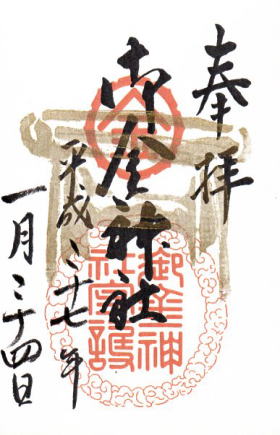 奉拝
御金神社
平成二十七年
一月二十四日
金
御金神